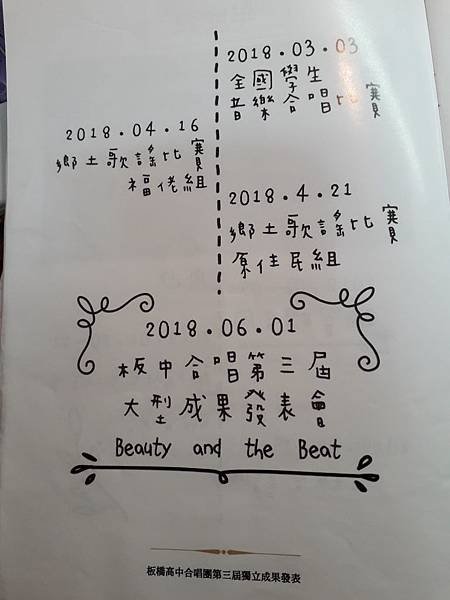 2018.03.03
全國學生
音樂合唱比賽
2018.04.16
鄉土歌謠比賽
福佬組
2018.4.21
鄉土歌謠比賽
原住民組
2018.06.01
板中合唱第三屆
大型成果發表會
Beauty and the Beat
板橋高中合唱團第三屆獨立成果發表